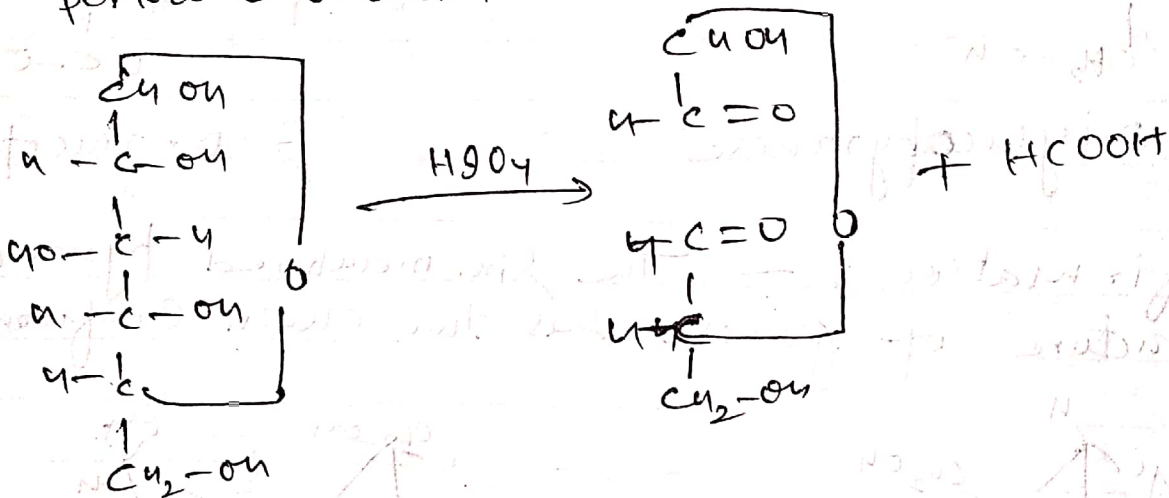 CH OH
H - C - OH
HO - C - H
H - C - OH
H - C
CH2 - OH
O
HIO4
CH OH
H - C = O
H - C = O
H - C
CH2 - OH
O
+ HCOOH